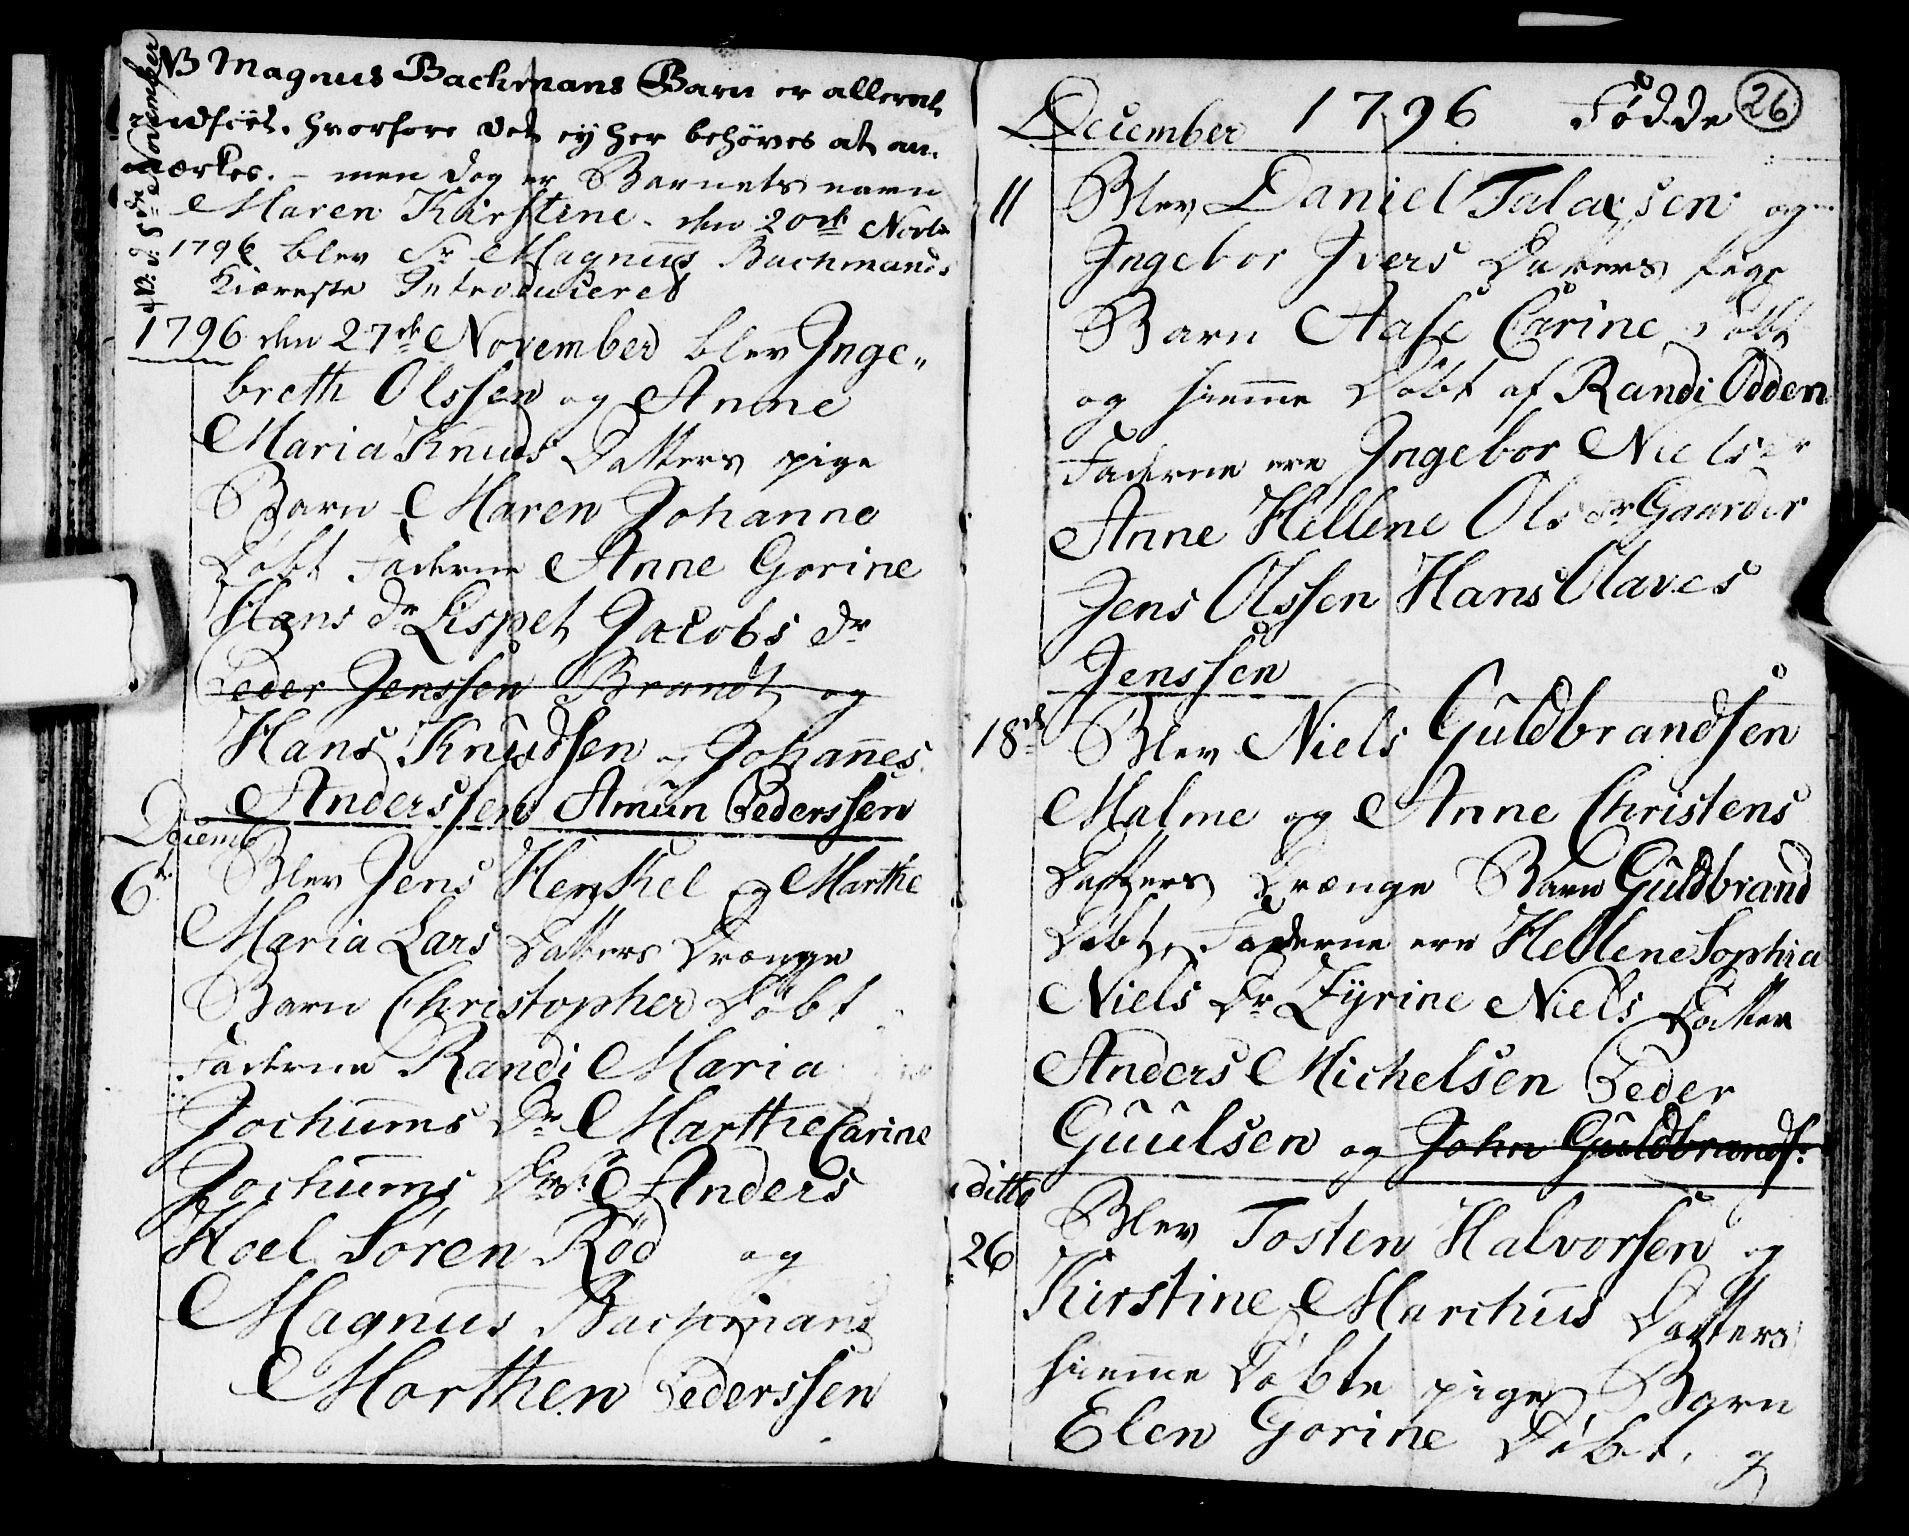 NB Magnus Bachmans Barn er allereede
indført. hvorfore det ey her behöves at an-
mærkes. - men dog er Barnets navn
Maren Kirstine. den 20de Novbr
1796 blev Sr Magnus Bachmands
Kiæreste Introduceret
November
1796 den 27de November blev Inge„
breth Olssen og Anne
Maria Knuds Datters pige
Barn Maren Johanne
Döbt Fadderne Anne Gorine
Hans dr Lispet Jacobs dr
Peder Jenssen Brandt og
Hans Knudsen og Johannes
Anderssen Amun Pederssen
Decemb
6te Blev Jens Henkel og Marthe
Maria Lars Datters Drænge
Barn Christopher Döbt
Fadderne Randi Maria
Jochums Dr Marthe Carine
Jochums Anders
Hoel Søren Röd og
Magnus Bachmans
Morthen Pederssen
December 1796 Födde 26
11 Blev Daniel Talaxsen og
Ingebor Ivers Daters pige
Barn Aase Carine döbt
og hiemme Döbt af Randi Odden
Faderne ere Ingebor Niels dr
Anne Hellene Ols dr Gaarder
Jens Olssen Hans Olaves
Jenssen
18de Blev Niels Guldbrandsen
Malme og Anne Christens
Datters Drænge Barn Guldbrand
Döbt, Faderne ere Hellene Sophia
Niels Dr Zyrine Niels Datter
Anders Michelsen Peder
Guulsen og John Guldbrands:
ditto
26 Blev Tosten Halvorsen og
Kirstine Marchus Datters
hiemme Döbte pige Barn
Elen Gorine Döbt. og